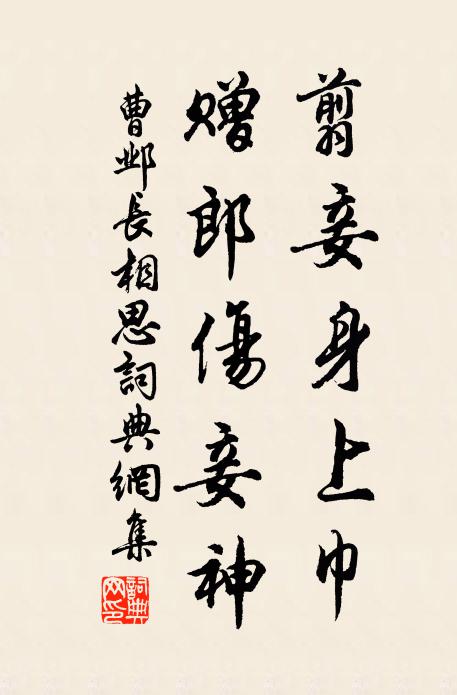 翦妾身上巾
贈郎傷妾神
曹鄴長相思詞典網集
詞典網印